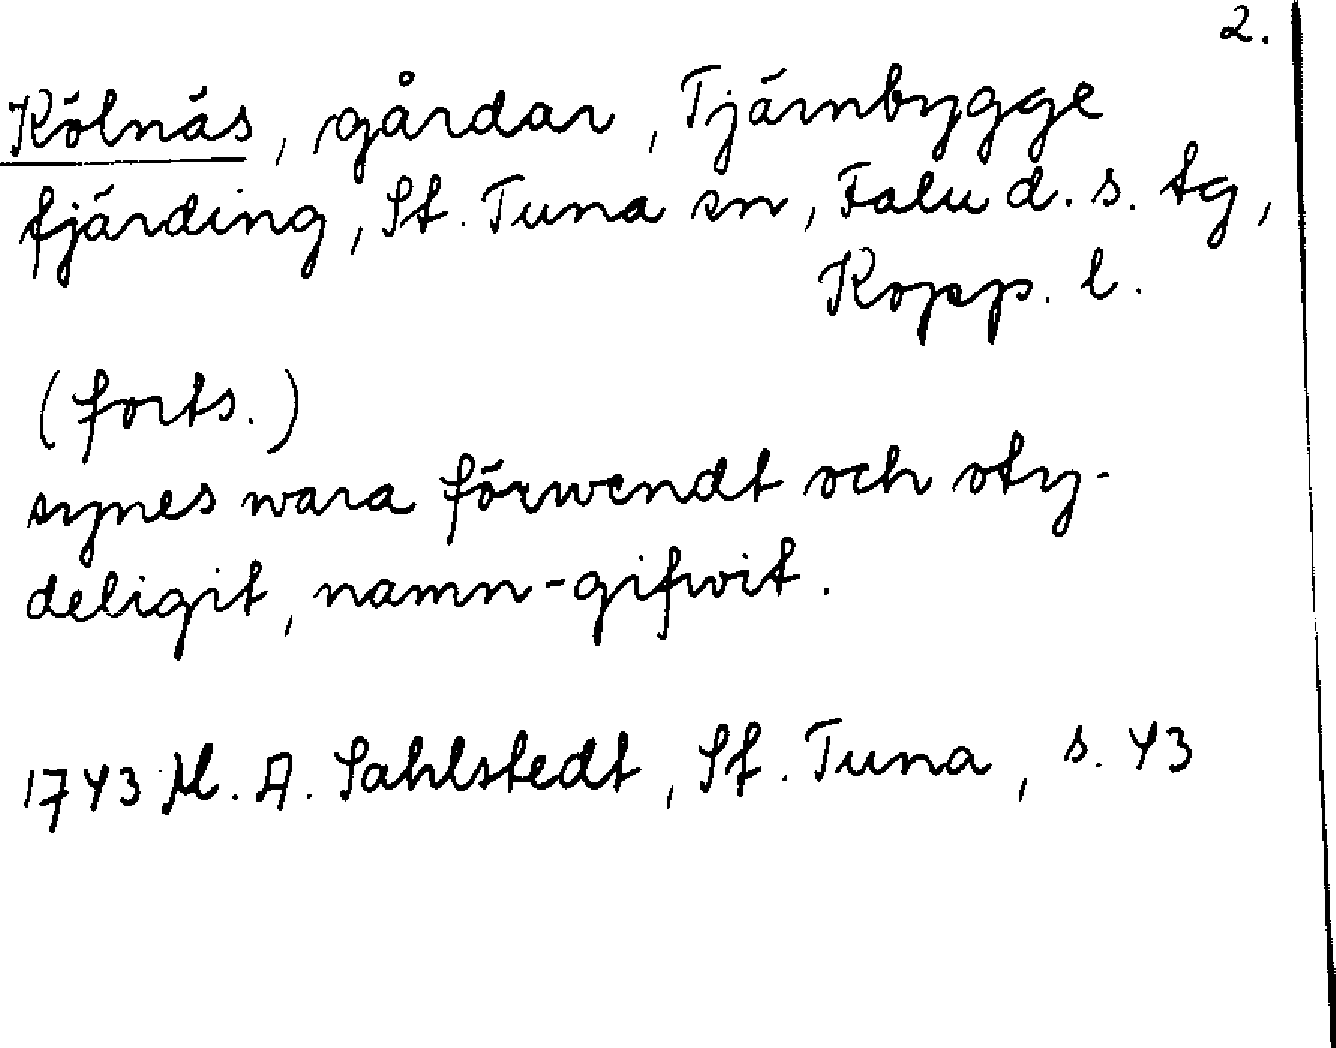 2.
Kölnäs, gårdar, Tjärnbygge
fjärding, St. Tuna sn, Falu d. s. tg,
Kopp. l.
(forts.)
synes wara förwendt och oty-
deligit, namn-gifwit.
1743 M. A. Sahlstedt, St. Tuna, s. 43